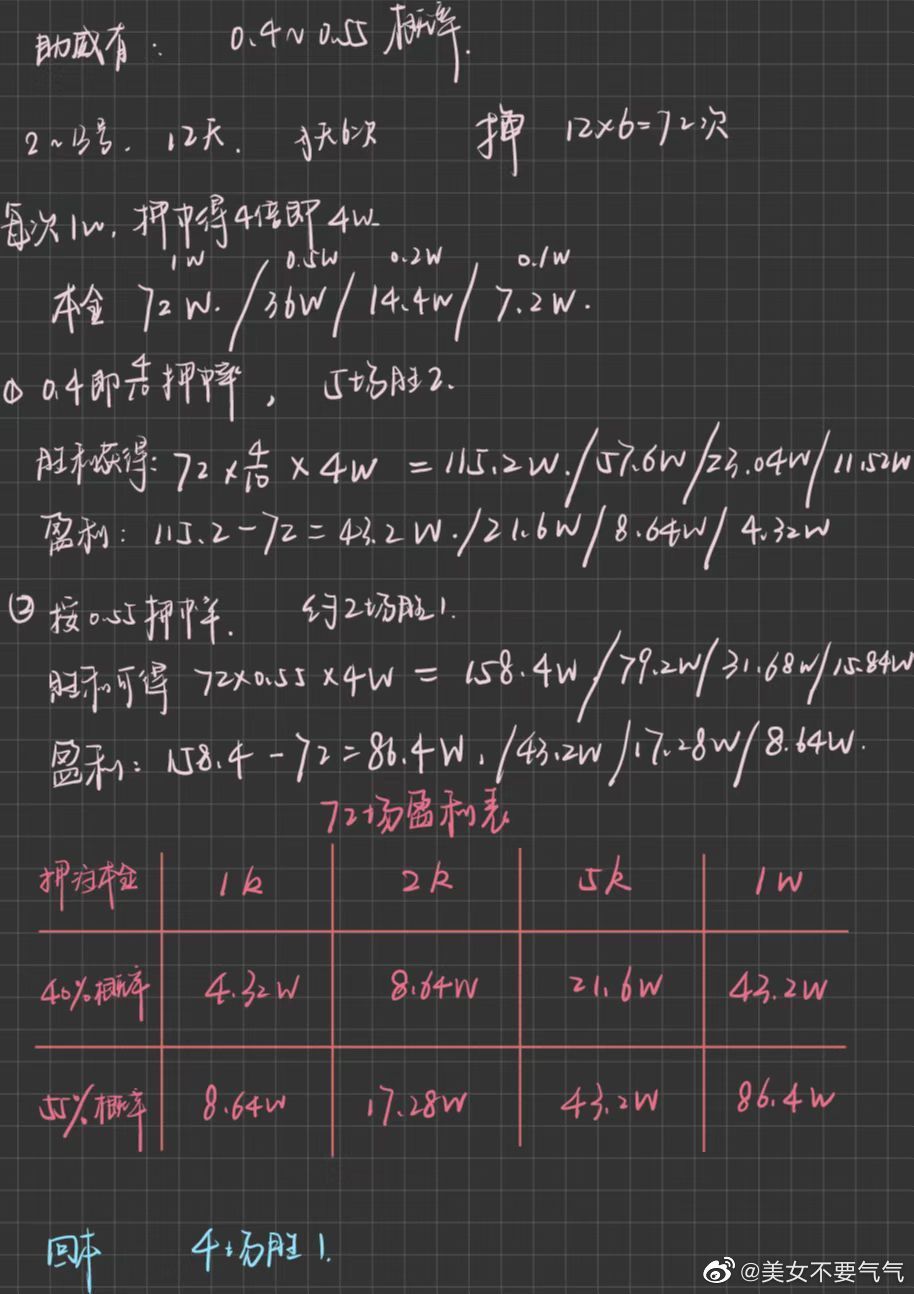 助威有： 0.4~0.55 概率.
2~13号. 12天. 每天6次 押 12×6=72次
每次1w, 押中得4倍即4w.
1w 0.5w 0.2w 0.1w
本金 72w./36w/14.4w/7.2w.
① 0.4即4/10押中率, 5场胜2.
胜利获得: 72×4/10×4w=115.2w./57.6w/23.04w/11.52w
盈利: 115.2-72=43.2w./21.6w/8.64w/4.32w
② 按0.55押中率. 约2场胜1.
胜利可得 72×0.55×4w=158.4w/79.2w/31.68w/15.84w
盈利: 158.4-72=86.4w./43.2w/17.28w/8.64w.
72场盈利表
押注本金 1k 2k 5k 1w
40%概率 4.32w 8.64w 21.6w 43.2w
55%概率 8.64w 17.28w 43.2w 86.4w
回本 4场胜1.
@美女不要气气